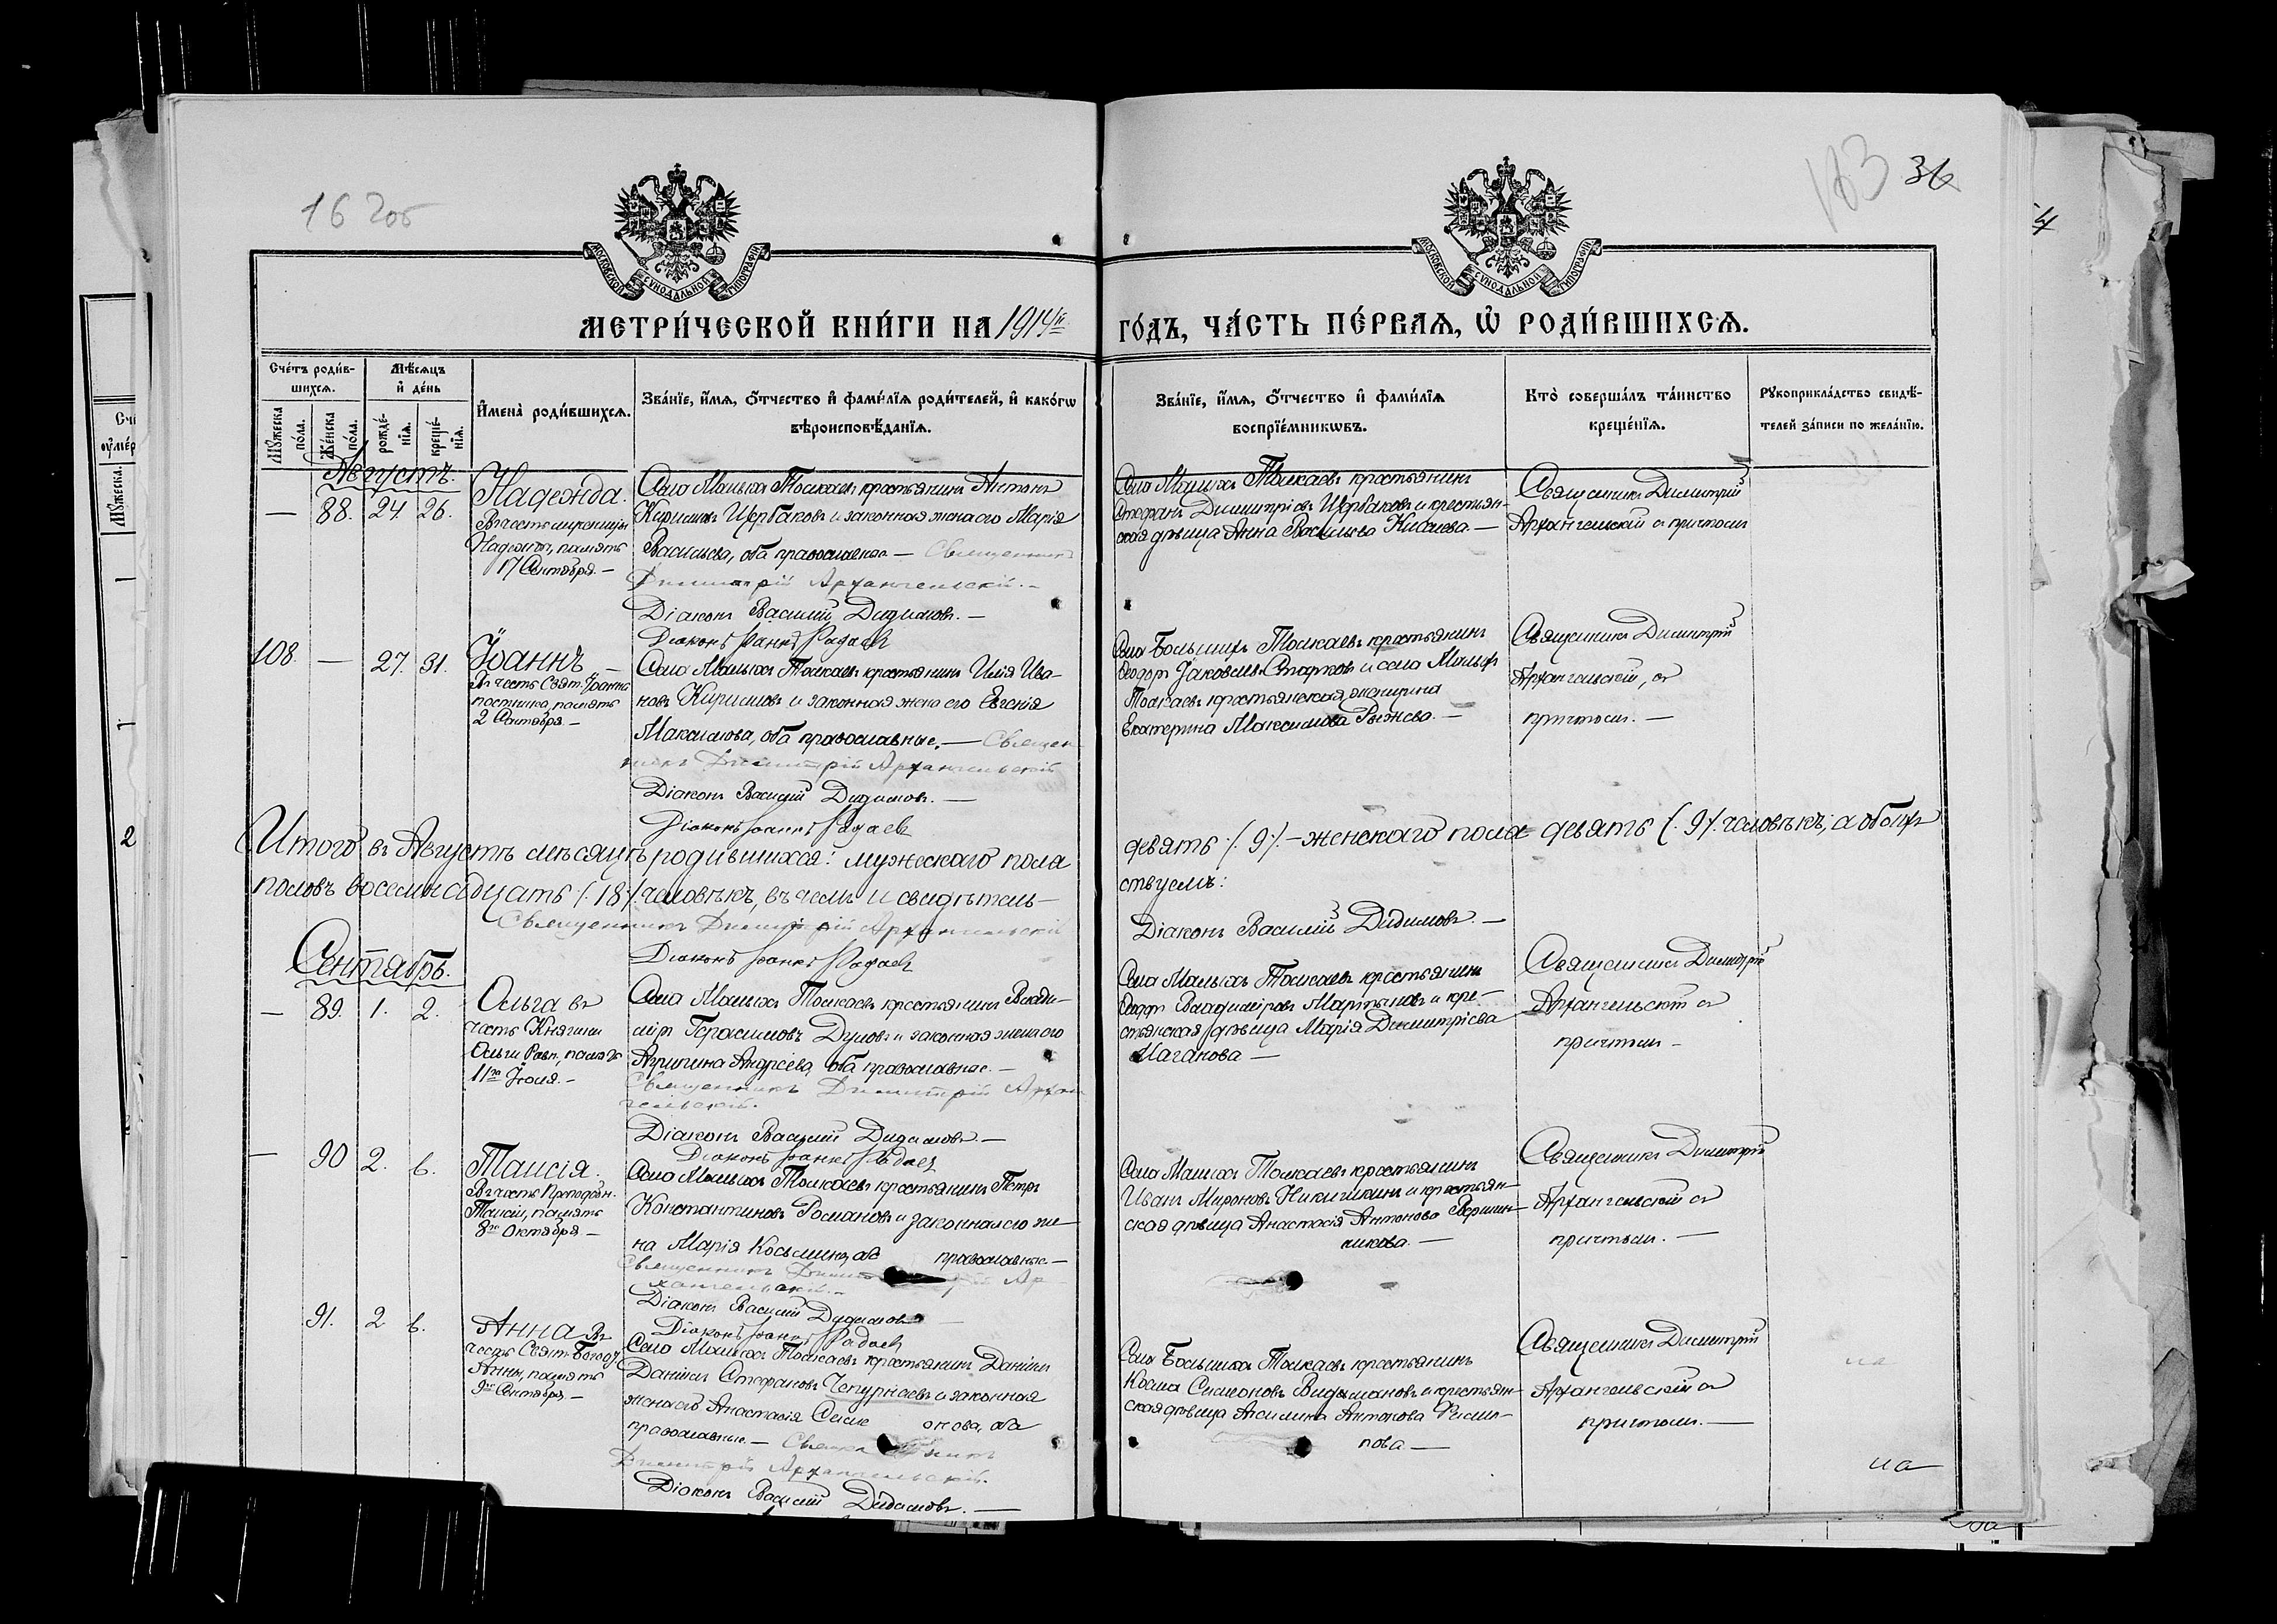 16 Zоб
183 36
МОСКОВСКОЙ СУНОДАЛЬНОЙ ТИПОГРАФІИ
МОСКОВСКОЙ СУНОДАЛЬНОЙ ТИПОГРАФІИ
МЕТРИ́ЧЕСКОЙ КНИ́ГИ НА 1914й
ГО́ДЪ, ЧА́СТЬ ПЕ́РВАѦ, Ѡ҆ РОДИ́ВШИХСѦ.
Сче́тъ роди́в-
шихсѧ.
Мѣ́сѧцъ
и҆ де́нь
Мꙋ́жеска по́ла.
Же́нска по́ла.
рожде́-
нїѧ.
креще́-
нїѧ.
И҆мена̀ роди́вшихсѧ.
Зва́нїе, и҆́мѧ, ѻ҆́тчество и҆ фами́лїѧ роди́телей, и҆ како́гѡ
вѣроисповѣ́данїѧ.
Зва́нїе, и҆́мѧ, ѻ҆́тчество и҆ фами́лїѧ
воспрїе́мникѡвъ.
Кто̀ соверша́лъ та́инство
креще́нїѧ.
Рꙋкоприкла́дство свидѣ́-
телей за́писи по жела́нїю.
Августъ.
— 88. 24. 26.
Надежда.
Въ честь мученицы
Надежды, память
17 Сентября. —
Села Малыхъ Толкаевъ крестьянинъ Антонъ
Кириловъ Щербаковъ и законная жена его Марія
Васильева, оба православные — Священникъ
Димитрій Архангельскій. —
Діаконъ Василій Дидимовъ. —
Діаконъ Іоаннъ Радаевъ
Села Малыхъ Толкаевъ крестьянинъ
Стефанъ Димитріевъ Щербаковъ и крестьян-
ская дѣвица Анна Васильева Кибаева. —
Священникъ Димитрій
Архангельскій съ причтомъ
108. — 27. 31.
Іоаннъ —
Въ честь Свят. Іоанна
постника, память
2 Сентября —
Села Малыхъ Толкаевъ крестьянинъ Илія Ива-
новъ Кириловъ и законная жена его Евгенія
Максимова, оба православные, — Священ
никъ Димитрій Архангельскій
Діаконъ Василій Дидимовъ. —
Діаконъ Іоаннъ Радаевъ
Села Большихъ Толкаевъ крестьянинъ
Ѳеодоръ Іаковлевъ Старковъ и села Малыхъ
Толкаевъ крестьянская женщина
Екатерина Максимова Рыжева. —
Священникъ Димитрій
Архангельскій, съ
причтомъ. —
Итого въ Августѣ мѣсяцѣ родившихся: мужескаго пола
девять (. 9). — женскаго пола девять (. 9). человѣкъ, а обоихъ
половъ восемнадцать (. 18). человѣкъ, въ чемъ и свидѣтель-
ствуемъ:
Священникъ Димитрій Архангельскій
Діаконъ Василій Дидимовъ. —
Діаконъ Іоаннъ Радаевъ
Сентябрь.
— 89. 1. 2.
Ольга въ
честь Княгини
Ольги Равн., память
11го Іюля. —
Села Малыхъ Толкаевъ крестьянинъ Влади-
миръ Герасимовъ Дуловъ и законная жена его
Агрипина Андреева, оба православные. —
Священникъ Димитрій Архан
гельскій.
Діаконъ Василій Дидимовъ —
Діаконъ Іоаннъ Радаевъ
Села Малыхъ Толкаевъ крестьянинъ
Ѳеодоръ Владиміровъ Мартыновъ и кре-
стьянская дѣвица Марія Димитріева
Маганова —
Священникъ Димитрій
Архангельскій съ
причтомъ —
— 90 2. 6.
Таисія.
Въ честь Преподобн.
Таисіи, память
8го Октября —
Села Малыхъ Толкаевъ крестьянинъ Петръ
Константиновъ Романовъ и законная его же-
на Марія Косьмина, оба православные —
Священникъ Димитрій Ар
хангельскій. —
Діаконъ Василій Дидимовъ —
Діаконъ Іоаннъ Радаевъ
Села Малыхъ Толкаевъ крестьянинъ
Иванъ Мироновъ Никишкинъ и крестьян-
ская дѣвица Анастасія Антонова Вершин-
никова. —
Священникъ Димитрій
Архангельскій съ
причтомъ. —
91. 2 6.
Анна Въ
честь Свят. Богоот.
Анны, память
9го Сентября —
Села Малыхъ Толкаевъ крестьянинъ Даніилъ
Даніилъ Стефановъ Чепурнаевъ и законная
жена его Анастасія Симеонова, оба
православные. — Священникъ
Димитрій Архангельскій.
Діаконъ Василій Дидимовъ. —
Села Большихъ Толкаевъ крестьянинъ
Косма Симеоновъ Видмановъ и крестьян-
ская дѣвица Акилина Антонова Филип-
пова —
Священникъ Димитрій
Архангельскій съ
причтомъ. —